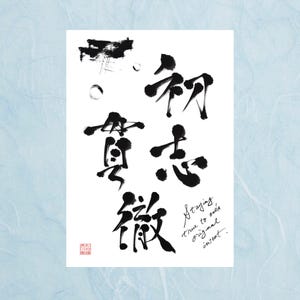 初志
貫徹
Staying
true to one's
original
intent.